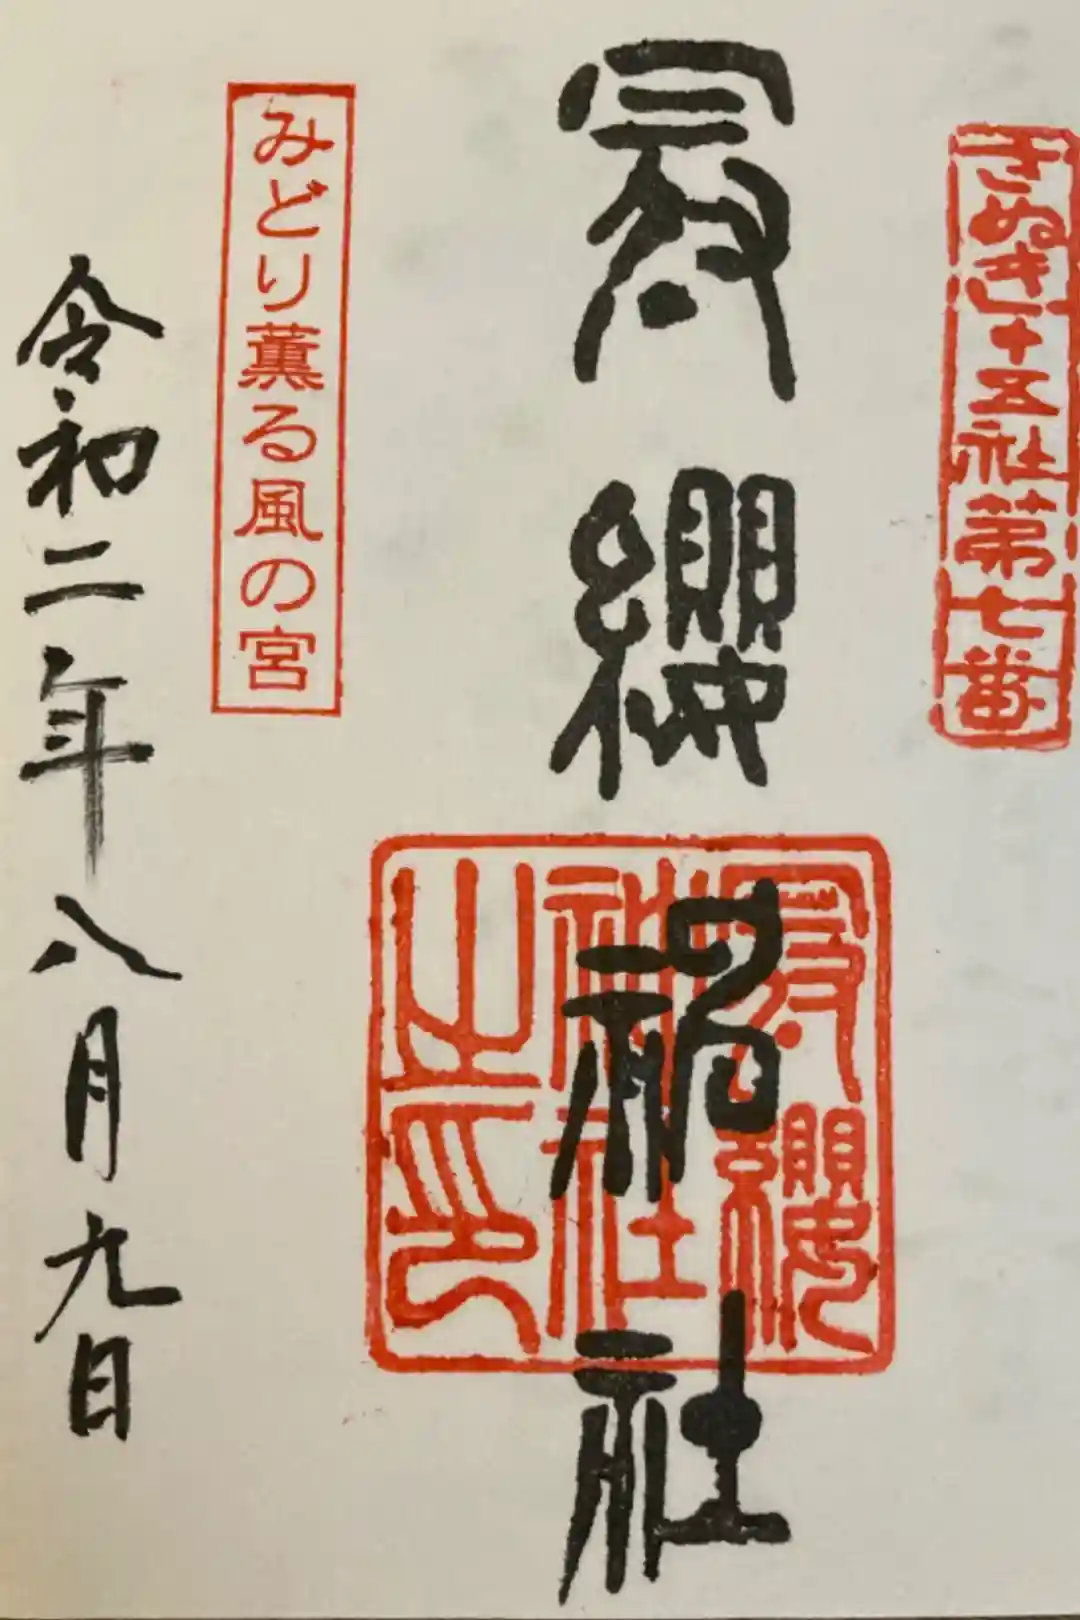 さぬき十五社第七番
冠纓神社
冠纓
神社
之印
みどり薫る風の宮
令和二年八月九日